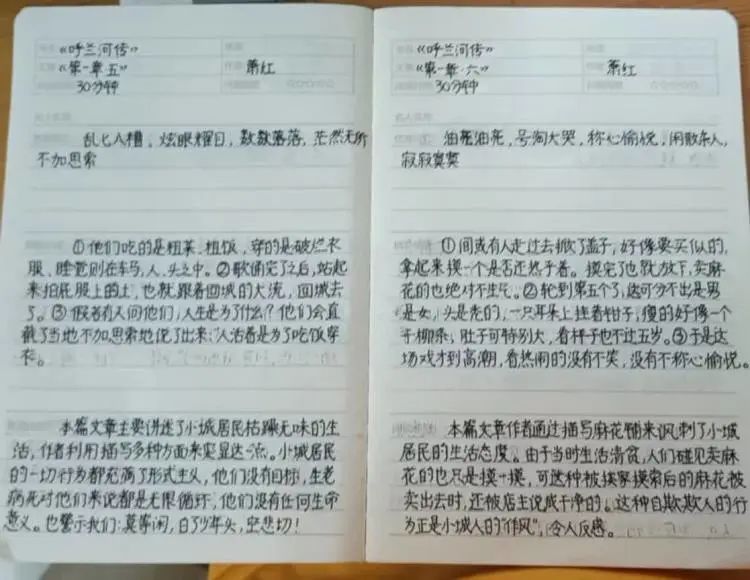 《呼兰河传》
《第一章·五》 萧红
30分钟
乱七八糟，炫眼耀目，数数落落，茫然无所
不加思索
①他们吃的是粗菜、粗饭，穿的是破烂衣
服、睡觉则在车马、人、头之中。②歇闹完了之后，站起
来拍屁股上的土，也就跟着回城的大流，回城去
了。③假若有人问他们，人生是为了什么？他们会直
截了当地不加思索地说了出来："人活着是为了吃饭穿
衣。
本篇文章主要讲述了小城居民枯躁无味的生
活，作者利用描写多种方面来突显达一点。小城居民
的一切行为都充满了形式主义，他们没有目标，生老
病死对他们来说都是无限循环，他们没有任何生命
意义。也警示我们：莫等闲，白了少年头，空悲切！
《呼兰河传》
《第一章·六》 萧红
30分钟
油亮油亮，号淘大哭，称心愉悦，闲散杂人，
寂寂寞寞
①间或有人走过去掀了盖子，好像要买似的，
拿起来摸一个是否还热乎着。摸完了也就放下，卖麻
花的也绝对不生气。②轮到第五个了，这可分不出是男
是女，头是秃的，一只耳朵上挂着钳子，瘦的好像一
干柳条，肚子可特别大，看样子也不过五岁。③于是这
场戏才到高潮，看热闹的没有不笑，没有不称心愉悦。
本篇文章作者通过描写麻花铺来讽刺了小城
居民的生活态度。由于当时生活清贫，人们碰见卖麻
花的也只是摸一摸，可这种被挨家摸索后的麻花被
卖出去时，还被店主说成干净的。这种自欺欺人的行
为正是小城人的"作风"，令人反感。